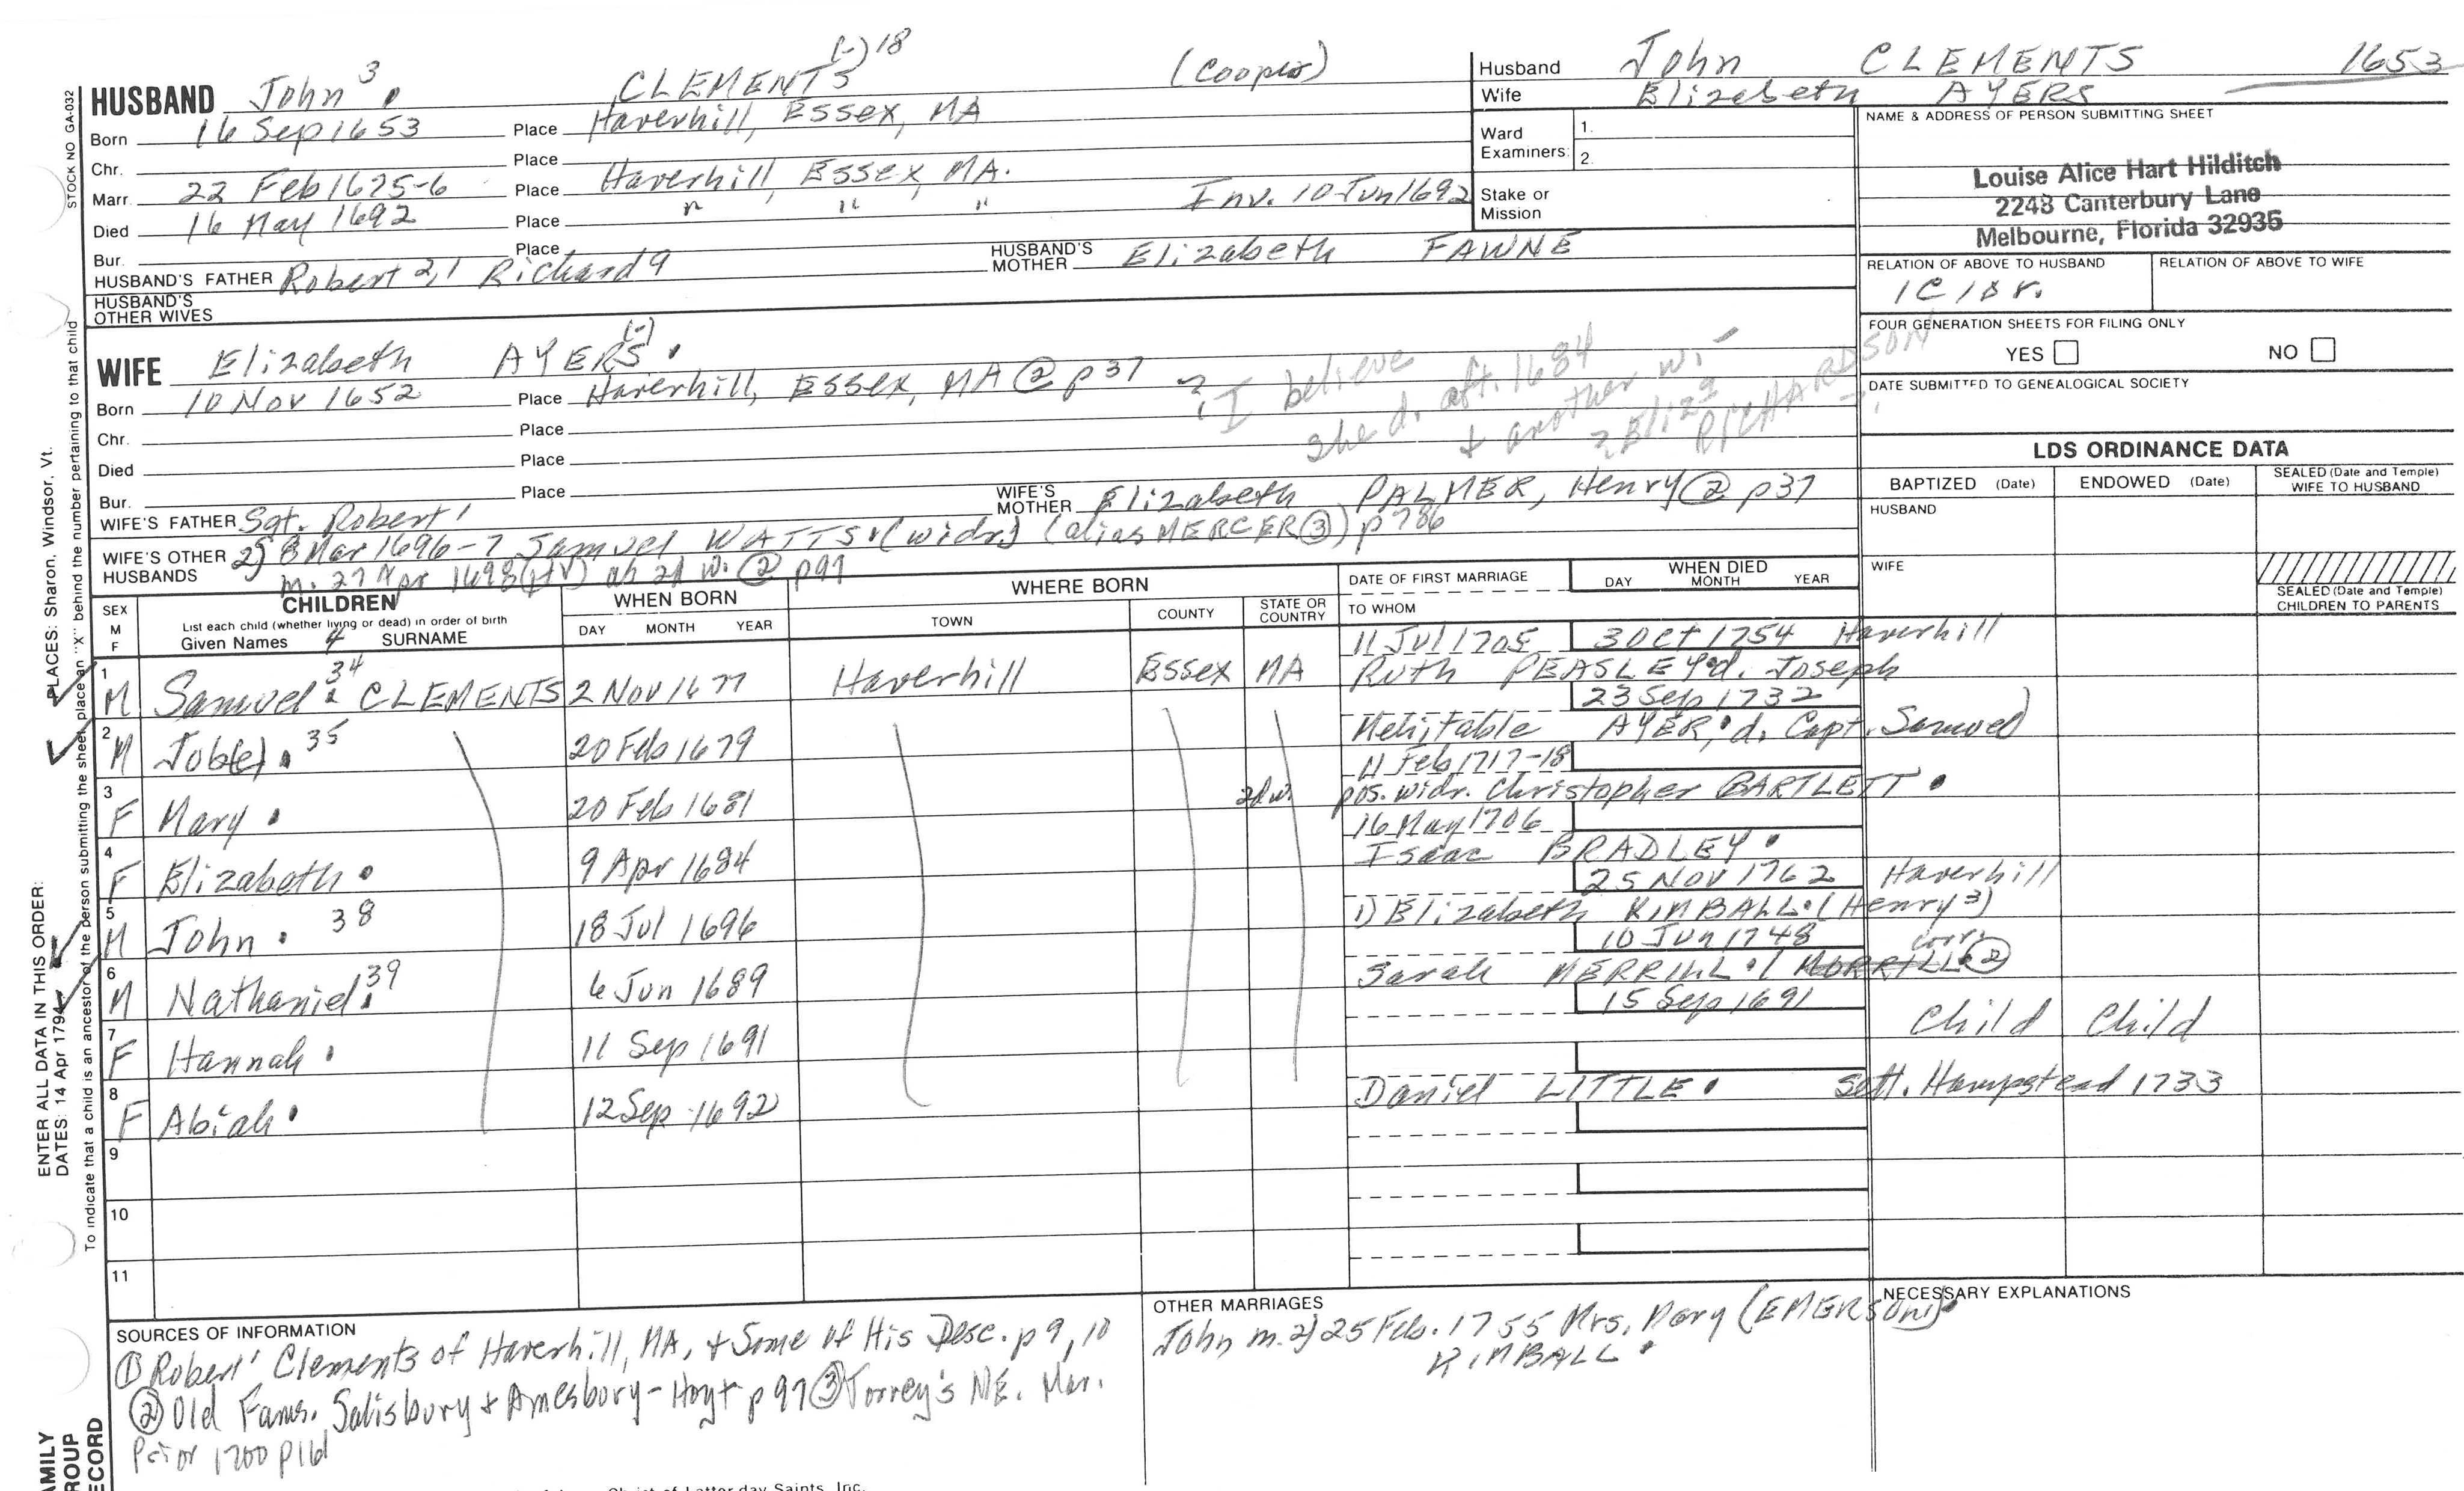 (-) 18
HUSBAND John 3 . CLEMENTS (Cooper)
Born 16 Sep 1653 Place Haverhill, Essex, MA
Chr. Place
Marr. 22 Feb 1675-6 Place Haverhill, Essex, MA.
Died 16 May 1692 Place " " " Inv. 10 Jun 1692
Bur. Place
HUSBAND'S FATHER Robert 2,1 Richard a HUSBAND'S MOTHER Elizabeth FAWNE
HUSBAND'S OTHER WIVES
Husband John CLEMENTS 1653
Wife Elizabeth AYERS
Ward Examiners: 1.
2.
Stake or Mission
NAME & ADDRESS OF PERSON SUBMITTING SHEET
Louise Alice Hart Hilditch
2248 Canterbury Lane
Melbourne, Florida 32935
RELATION OF ABOVE TO HUSBAND RELATION OF ABOVE TO WIFE
1C1Dr.
FOUR GENERATION SHEETS FOR FILING ONLY
YES NO
DATE SUBMITTED TO GENEALOGICAL SOCIETY
(-)
WIFE Elizabeth AYERS .
Born 10 Nov 1652 Place Haverhill, Essex, MA ② p37
? I believe
she d. aft. 1684
& another w. -
? Eliza RICHARDSON
Chr. Place
Died Place
Bur. Place
WIFE'S FATHER Sgt. Robert 1 WIFE'S MOTHER Elizabeth PALMER, Henry ② p37
WIFE'S OTHER HUSBANDS 2) 8 Mar 1696-7 Samuel WATTS . (widr) (alias MERCER ③) p786
m. 27 Apr 1698 (HV) as 2d w. ② p97
LDS ORDINANCE DATA
BAPTIZED (Date) ENDOWED (Date) SEALED (Date and Temple) WIFE TO HUSBAND
HUSBAND
WIFE
SEALED (Date and Temple) CHILDREN TO PARENTS
SEX M F
CHILDREN
List each child (whether living or dead) in order of birth
Given Names 4 SURNAME
WHEN BORN
DAY MONTH YEAR
WHERE BORN
TOWN COUNTY STATE OR COUNTRY
DATE OF FIRST MARRIAGE
TO WHOM
WHEN DIED
DAY MONTH YEAR
11 Jul 1705 3 Oct 1754 Haverhill
1 M Samuel . 34 CLEMENTS 2 Nov 1677 Haverhill Essex MA Ruth PEASLEY . d. Joseph
23 Sep 1732
2 M Job(e) . 35 20 Feb 1679 Mehitable AYER . d. Capt. Samuel
11 Feb 1717-18
3 F Mary . 20 Feb 1681 2d w. pos. widr. Christopher BARTLETT .
16 May 1706
4 F Elizabeth . 9 Apr 1684 Isaac BRADLEY .
25 Nov 1762 Haverhill
5 M John . 38 18 Jul 1696 1) Elizabeth KIMBALL . (Henry 3)
10 Jun 1748 corr.
6 M Nathaniel . 39 6 Jun 1689 Sarah MERRILL . (MORRILL ②
15 Sep 1691
7 F Hannah . 11 Sep 1691 Child Child
8 F Abiah . 12 Sep 1692 Daniel LITTLE . Sett. Hampstead 1733
9
10
11
SOURCES OF INFORMATION
① Robert 1 Clements of Haverhill, MA, & Some of His Desc. p 9, 10
② Old Fams. Salisbury & Amesbury - Hoyt p 97 ③ Torrey's NE. Mar.
Prior 1700 p161
OTHER MARRIAGES
John m. 2) 25 Feb. 1755 Mrs. Mary (EMERSON) .
KIMBALL .
NECESSARY EXPLANATIONS
STOCK NO GA-032
ENTER ALL DATA IN THIS ORDER:
DATES: 14 Apr 1794
PLACES: Sharon, Windsor, Vt.
To indicate that a child is an ancestor of the person submitting the sheet, place an "X" behind the number pertaining to that child
AMILY
ROUP
ECORD
Christ of Latter-day Saints, Inc.